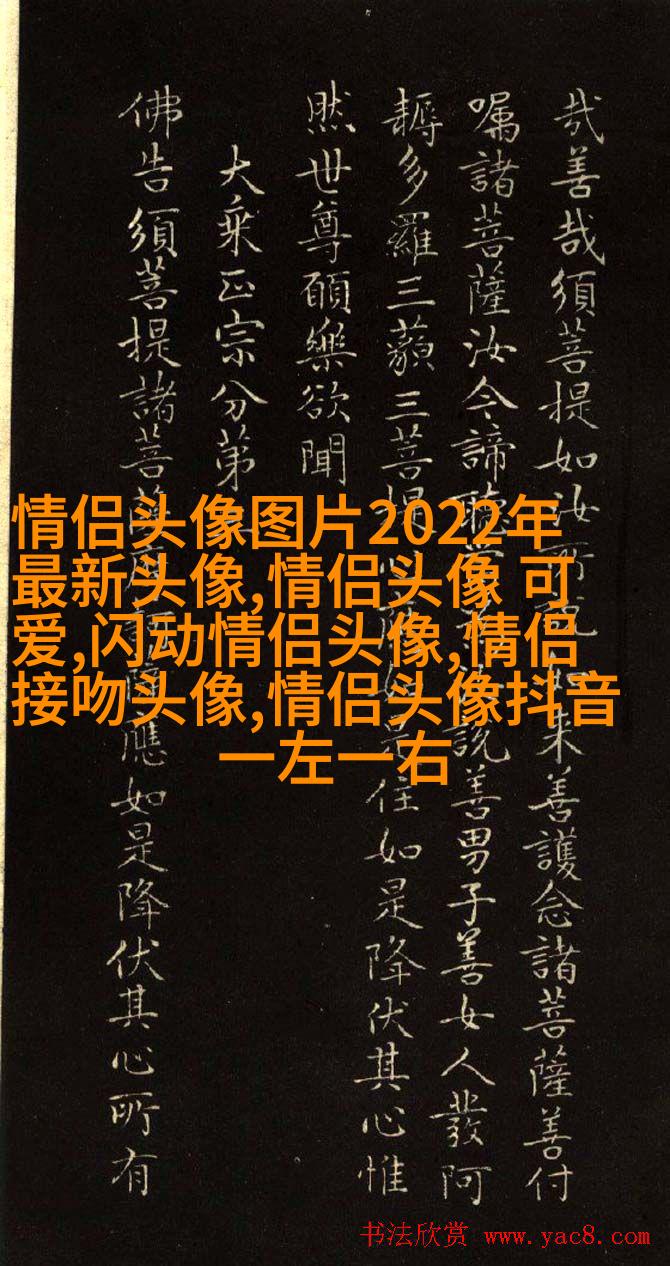 哉善哉須菩提如汝所来善護念諸菩薩善付
囑諸菩薩汝今諦說善男子善女人發阿
耨多羅三藐三菩提住如是降伏其心惟
然世尊願樂欲聞
大乘正宗分第
佛告須菩提諸菩應如是降伏其心所有
情侣头像图片2022年
最新头像,情侣头像 可
爱,闪动情侣头像,情侣
接吻头像,情侣头像抖音
一左一右
书法欣赏 www.yac8.com